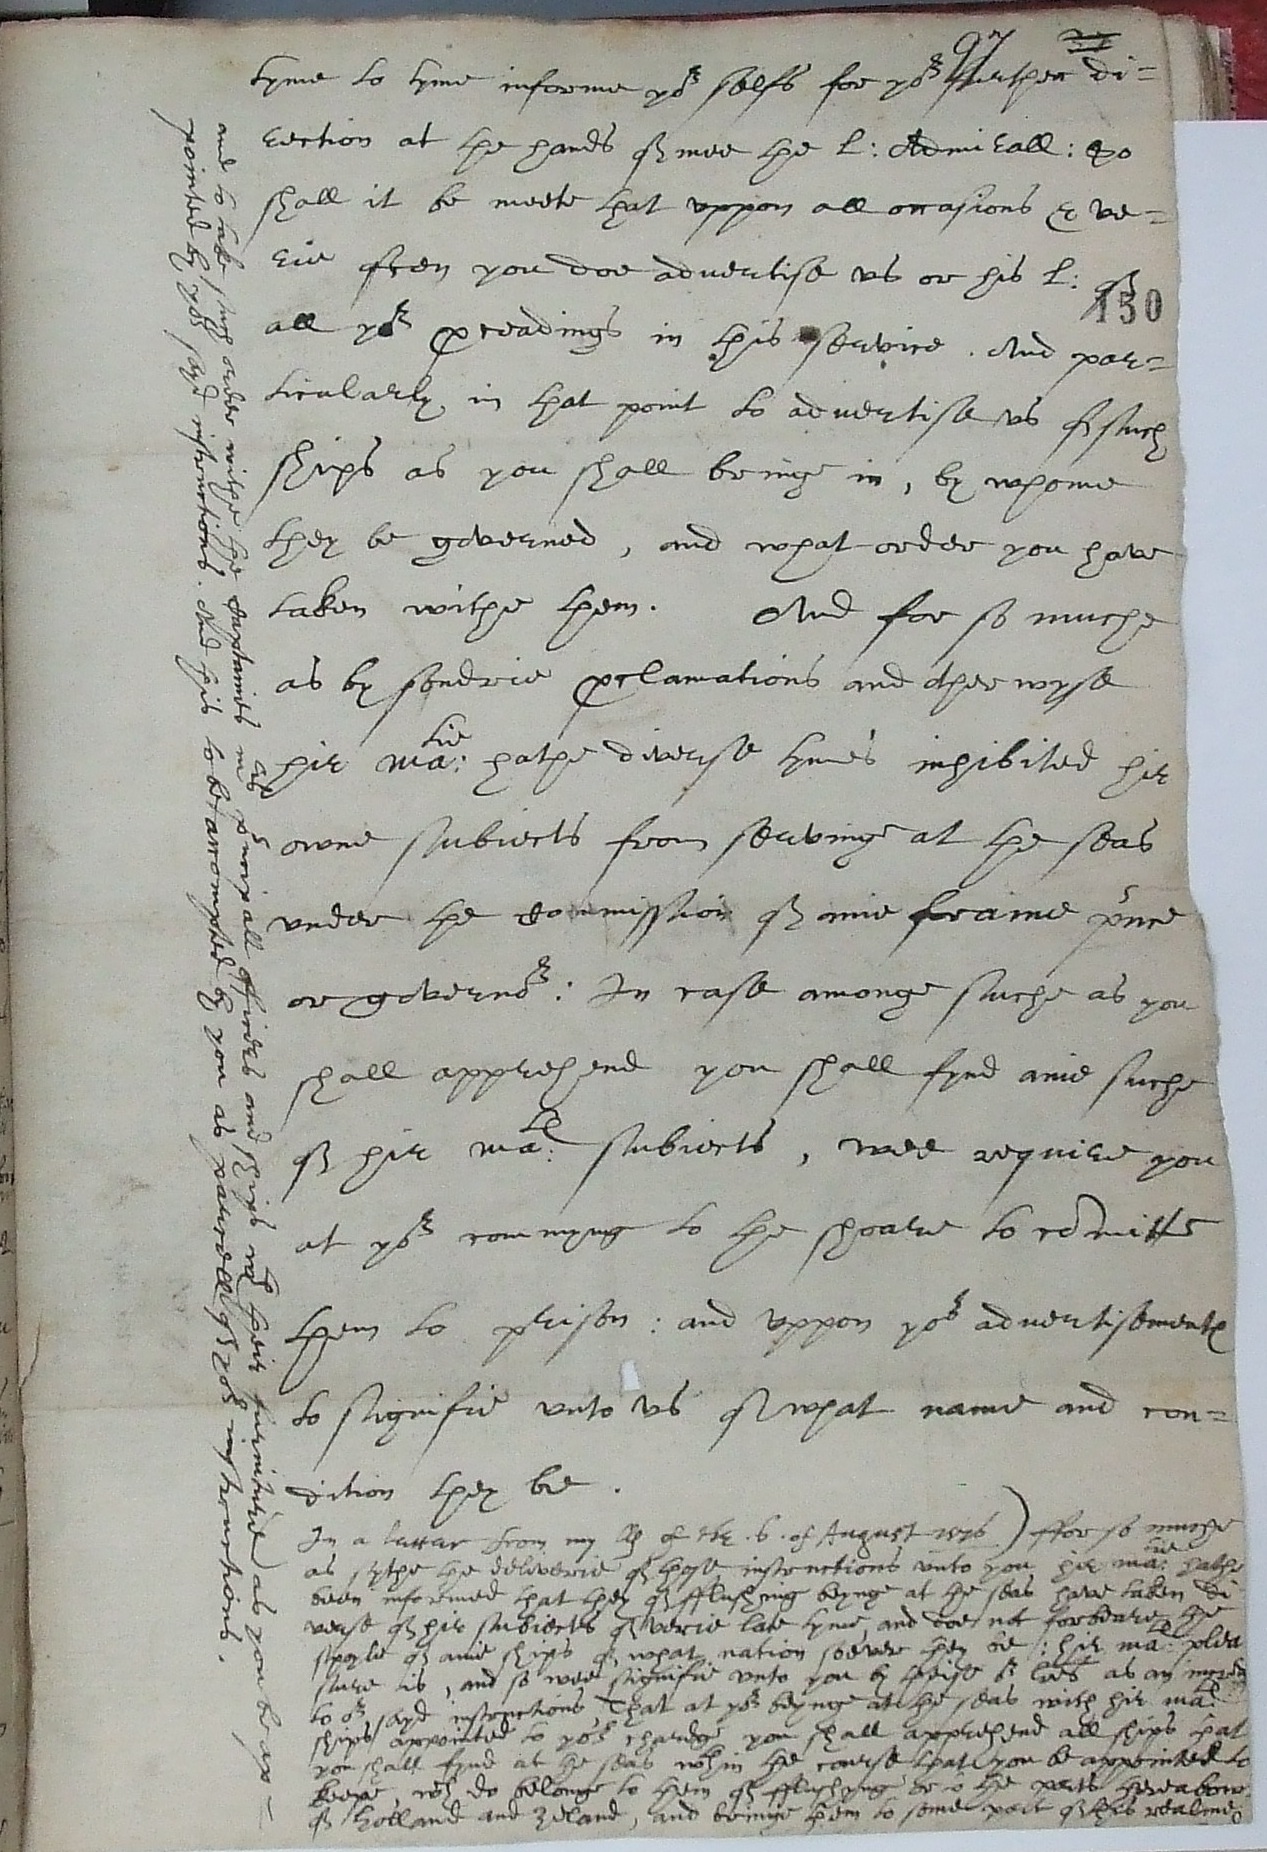 97
tyme to tyme informe yor selfs for yor further di=
rection at the hands of mee the L: Admirall: So
shall it be meete that uppon all occasions & ve=
rie often you doe advertise us or his L: of
150
all yor proceadings in this service. And par=
ticularly in that point to advertise us of such
ships as you shall bringe in, by whome
they be governed, and what order you have
taken withe them. And for so muche
as by sondrie proclamations and otherwyse
hir Matie: hathe diverse tymes inhibited hir
owne subiects from servinge at the seas
under the commission of anie fraime prince
or governor: In case amonge suche as you
shall apprehend you shall fynd anie suche
of hir Mats: subiects, wee require you
at yor commyng to the shoare to comitte
them to prison: and uppon yor advertisements
to signifie unto us of what name and con=
dition they be.
In a letter from my Lls of the .6. of August 1576) ffor so muche
as sythe the deliverie of those instructions unto you hir Matie: hathe
been informed that they of Fflushing beynge at the seas have taken di
verse of hir subiects of verie late tyme, and doe not forbeare the
spoyle of anie ships of what nation soever they be: hir Mats: plea
sure is, and so wee signifie unto you by theise or lres as an
to or sayd instructions, That at yor beynge at the seas with hir Mats
ships appointed to yor chardge you shall apprehend all ships that
you shall fynd at the seas within the course that you be appointed to
keepe, wch do belonge to them of Fflushyng or o the parts thereabow
of Holland and Zeland, and bringe them to some port of this realme
and to take such order withe the captaines and principall officers and ships wth their furniture as you be ap=
pointed by yor sayd instructions. And this to be accompted by you as parcell of yor instructions.